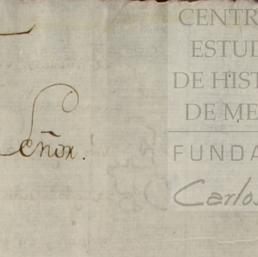 CENTR
ESTUD
DE HIST
DE ME
FUNDA
Carlos
Señor.